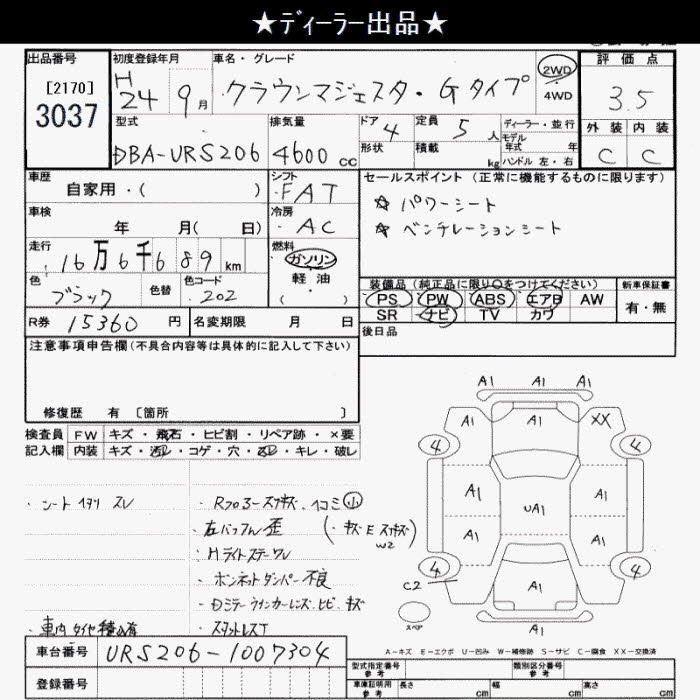 ★ディーラー出品★
出品番号 初度登録年月 車名・グレード 2WD 評価点
[2170] H 24 9月 クラウンマジェスタ・Gタイプ 4WD 3.5
3037
型式 排気量 ドア 定員 ディーラー・並行 外装 内装
DBA-URS206 4600cc 4 5人 モデル年式 年
形状 積載 kg ハンドル 左・右 C C
車歴 シフト セールスポイント (正常に機能するものに限ります)
自家用・( ) FAT ☆ パワーシート
車検 冷房 ☆ ベンチレーションシート
年 月( 日) AC
走行 燃料
16万6千689km ガソリン
軽油
( ・ )
色 色替 色コード 装備品 (純正品に限り○をつけてください) 新車保証書
ブラック 202 PS PW ABS エアB AW 有・無
SR ナビ TV カワ
R券 15360円 名変期限 月 日 後日品
注意事項申告欄 (不具合内容等は具体的に記入して下さい)
修復歴 有 〔箇所 〕
検査員 FW キズ・飛石・ヒビ割・リペア跡・×要
記入欄 内装 キズ・汚レ・コゲ・穴・スレ・キレ・破レ
・シート ヘタリ スレ
・Rフロアースリキズ、ヘコミ小
・右バックフェン 歪 (・キズE スリキズ W2)
・Hライトステークレ
・ボンネットダンパー不良
・Dミラーウインカーレンズ ヒビ キズ
・車内タイヤ積ミ有 ・スタットレスT
A1 A1 A1
A1 A1 XX
4 4
A1 A1
UA1
A1 A1
4 4
C2 A1
A1
スペア
A-キズ E-エクボ U-凹み W-補修跡 S-サビ C-腐食 XX-交換済
車台番号 URS206-1007304
登録番号
型式指定番号 参考 類別区分番号 参考
車庫証明用 参考 長さ cm 幅 cm 高さ cm